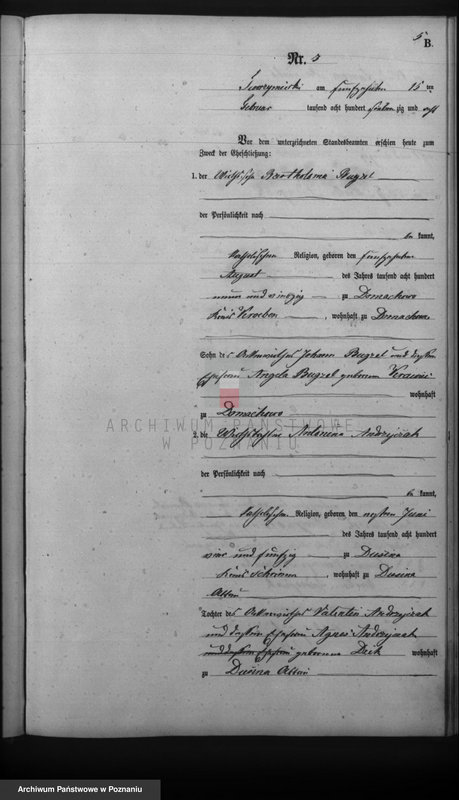 5
B.
Nr. 5
am fünfzehnten 15 ten
Februar tausend acht hundert siebenzig und acht
Vor dem unterzeichneten Standesbeamten erschien heute zum
Zweck der Eheschließung:
1. der Bartholomä Bugzel
der Persönlichkeit nach
be kannt,
katholischer Religion, geboren den fünfzehnten
August des Jahres tausend acht hundert
neun und vierzig zu Domachowo
Kreis Kroeben, wohnhaft zu Domachowo
Sohn des Johann Bugzel und dessen
Ehefrau Angela Bugzel geborenen
wohnhaft
zu Domachowo
ARCHIWUM PAŃSTWOWE
W POZNANIU
2. die Antonina Andrzejczak
der Persönlichkeit nach
be kannt,
katholischer Religion, geboren den ersten Juni
des Jahres tausend acht hundert
vier und funfzig zu Dusina
Kreis Schrimm, wohnhaft zu Dusina
Tochter des Valentin Andrzejczak
und dessen Ehefrau Agnes Andrzejczak
und dessen Ehefrau geborenen wohnhaft
zu Dusina
Archiwum Państwowe w Poznaniu